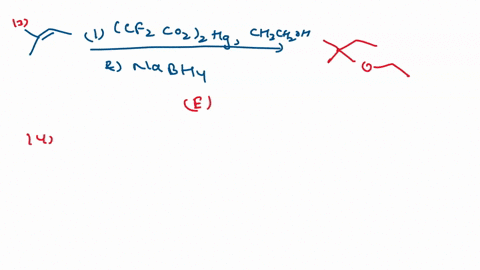 (3)
(1) (CF2 CO2)2 Hg, CH3CH2OH
2) NaBH4
O
(E)
(4)